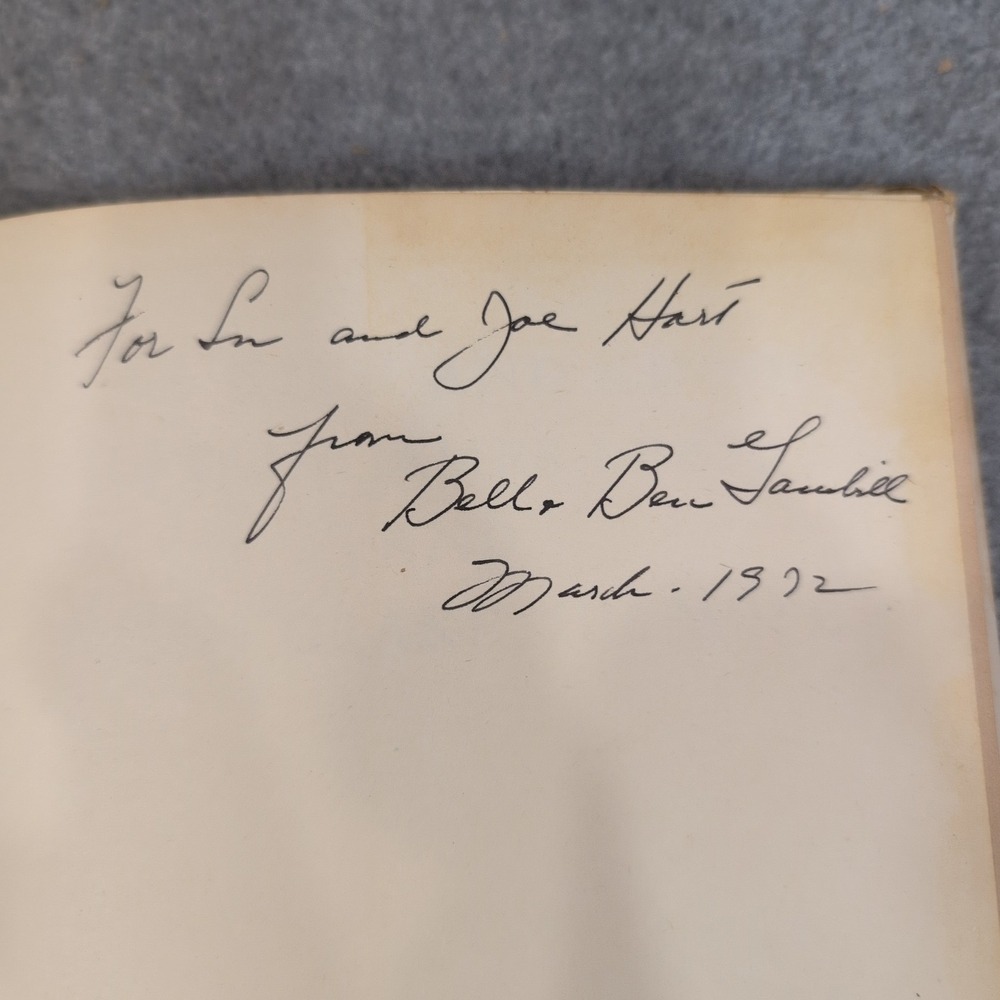 For Su and Joe Hart
from
Bell & Ben Gambill
March - 1972